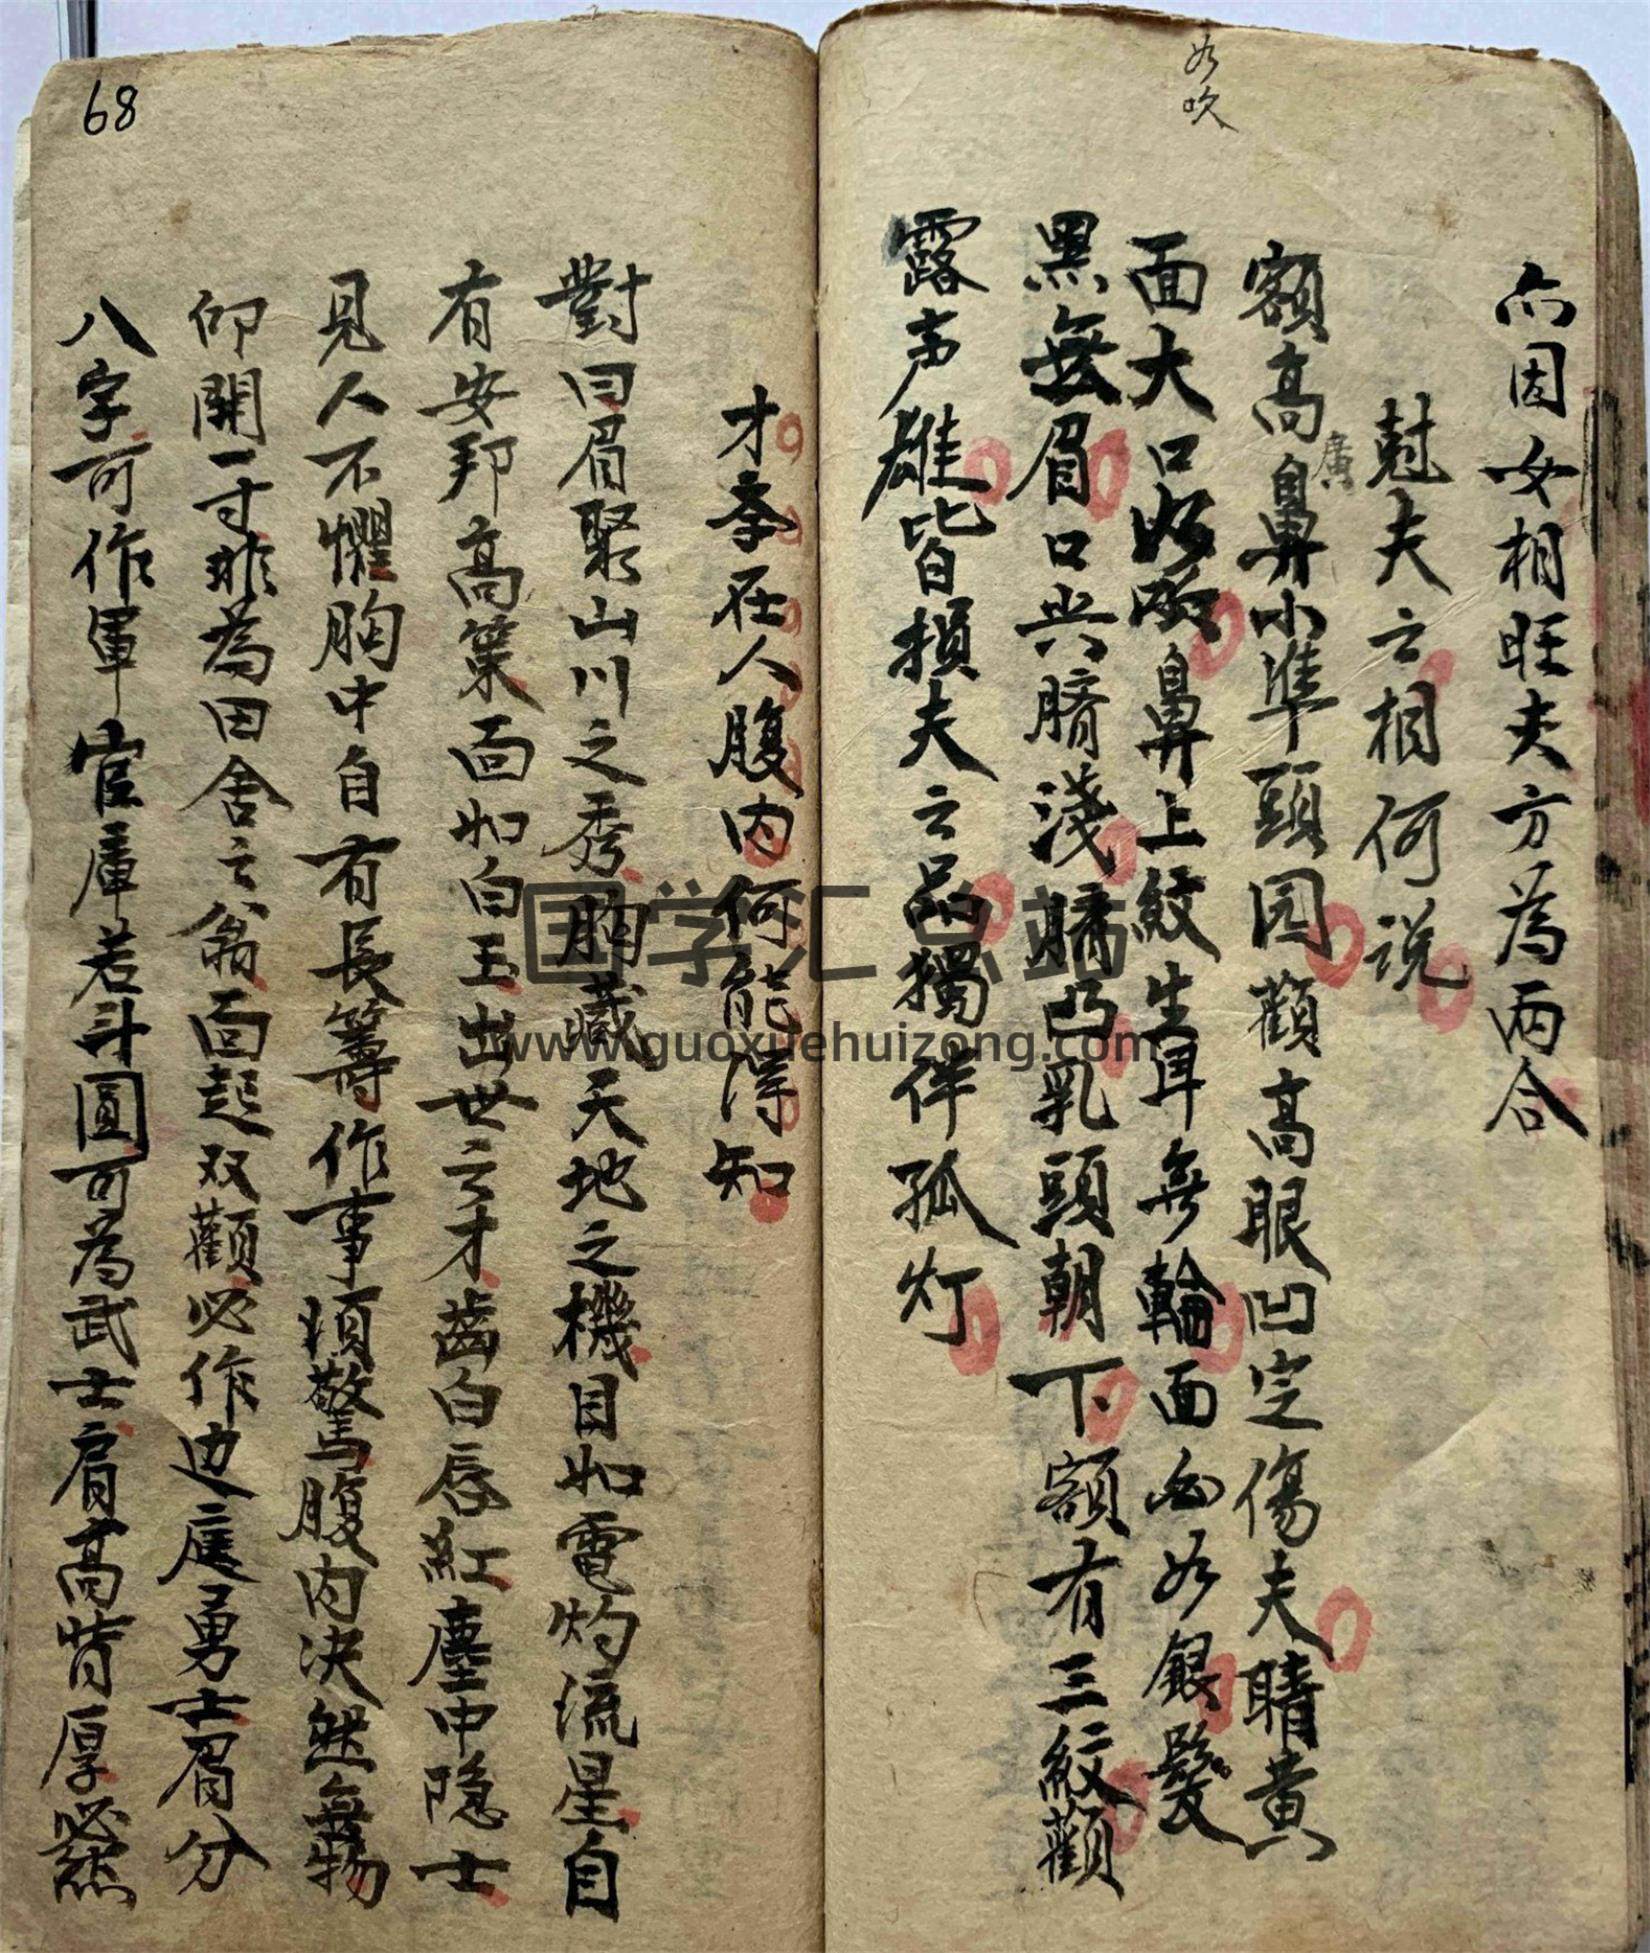 如吹
亦因女相旺夫方為兩合
尅夫之相何説
額高鼻小準頭园顴高眼凹定傷夫睛黄
廣
面大口如吹鼻上紋生耳無輪面如銀髮
黑無眉口與臍淺臍凸乳頭朝下額有三紋顴
露声雄皆損夫之品獨伴孤灯
才斈在人腹内何能淂知
對曰眉聚山川之秀胸藏天地之機目如電灼流星自
有安邦高策面如白玉出世之才齒白唇紅塵中隐士
見人不懼胸中自有長籌作事煩驚腹内决然無物
仰開一寸非為田舍之翁面起双顴必作边庭勇士眉分
八字可作軍官庫若斗圓可為武士肩高背厚必然
68
国学汇总站
www.guoxuehuizong.com